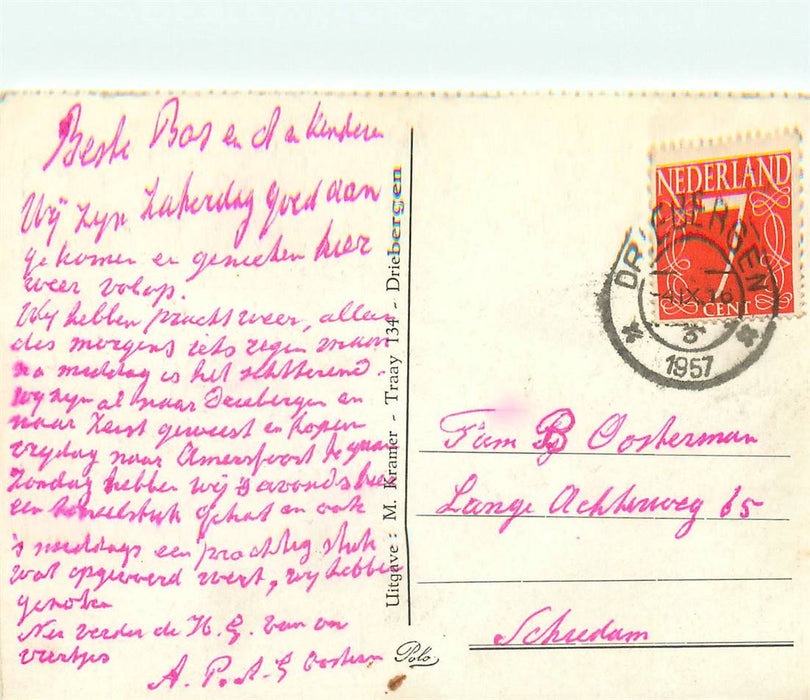 Beste Bos en d en kinderen
Wij zyn zaterdag goed aan
gekomen en genieten hier
weer volop.
Wy hebben prachtweer, alleen
des morgens iets regen maar
na middag is het schitterend.
Wy zyn al naar Driebergen en
naar Zeist geweest en hopen
vrydag naar Amersfoort te gaan
Zondag hebben wij 's avonds hier
een toneelstuk gehat en ook
's middags een prachtig stuk
wat opgevoerd wert, wy hebben
genoten
Nu verder de H. G. van on
A. P. A. G Oosterm
Uitgave : M. Kramer - Traay 134 - Driebergen
Polo
NEDERLAND
7
CENT
DRIEBERGEN
-4.IX.16
1957
Fam B Oosterman
Lange Achterweg 65
Schiedam